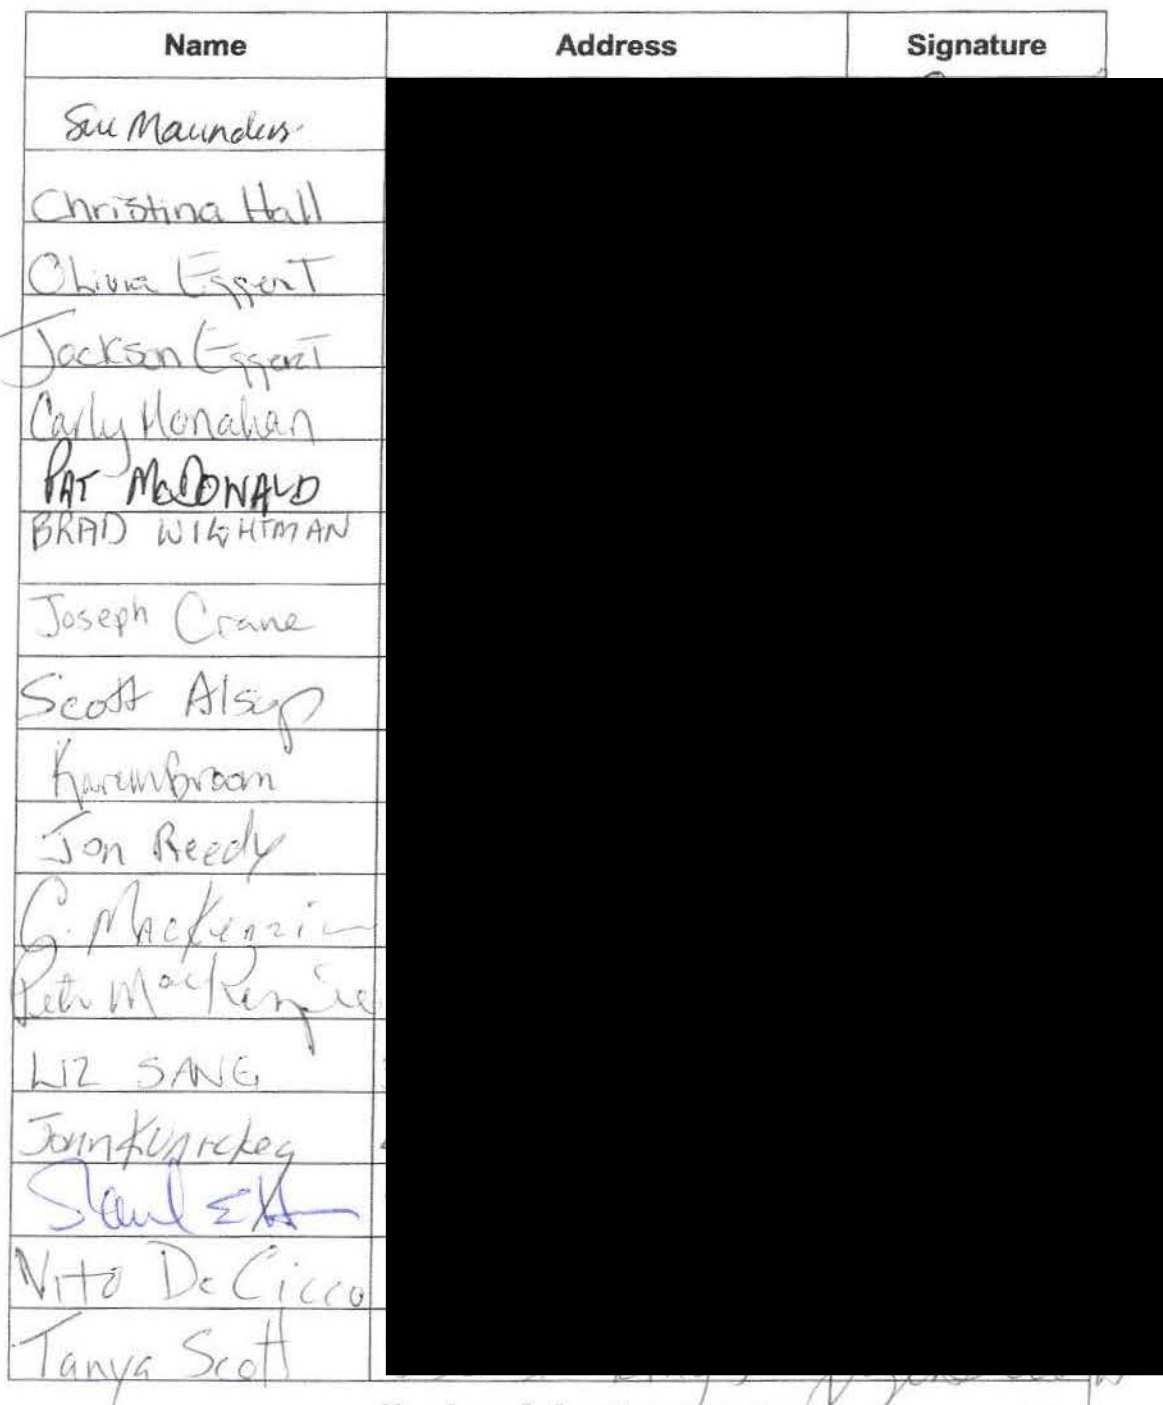 Name Address Signature
Sue Maunders
Christina Hall
Olivia Eggert
Jackson Eggert
Carly Monahan
PAT McDONALD
BRAD WIGHTMAN
Joseph Crane
Scott Alsup
Karen Broom
Jon Reedy
G. MacKenzie
MacKenzie
LIZ SANG
John
Vito De Cicco
Tanya Scott